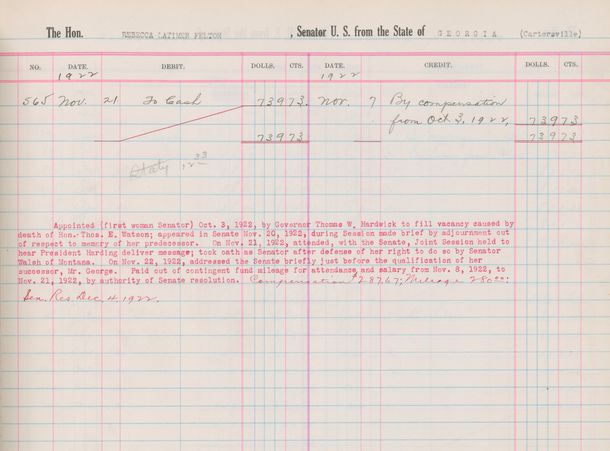 The Hon. REBECCA LATIMER FELTON , Senator U. S. from the State of GEORGIA (Cartersville)
NO. DATE. DEBIT. DOLLS. CTS. DATE. CREDIT. DOLLS. CTS.
1922 1922
565 Nov. 21 To Cash 739 73. Nov. 7 By compensation
from Oct. 3, 1922, 739 73
739 73 739 73
Appointed (first woman Senator) Oct. 3, 1922, by Governor Thomas W. Hardwick to fill vacancy caused by
death of Hon. Thos. E. Watson; appeared in Senate Nov. 20, 1922, during Session made brief by adjournment out
of respect to memory of her predecessor. On Nov. 21, 1922, attended, with the Senate, Joint Session held to
hear President Harding deliver message; took oath as Senator after defense of her right to do so by Senator
Walsh of Montana. On Nov. 22, 1922, addressed the Senate briefly just before the qualification of her
successor, Mr. George. Paid out of contingent fund mileage for attendance, and salary from Nov. 8, 1922, to
Nov. 21, 1922, by authority of Senate resolution. Compensation $287.67; Mileage 280.00;
Sen. Res. Dec. 4, 1922.